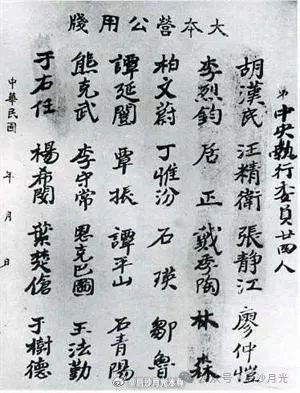 大本營公用牋
第中央執行委員廿四人
胡漢民 汪精衛 張靜江 廖仲愷
李烈鈞 居正 戴季陶 林森
柏文蔚 丁惟汾 石瑛 鄒魯
譚延闓 覃振 譚平山 石青陽
熊克武 李守常 恩克巴圖 王法勤
于右任 楊希閔 葉楚傖 于樹德
中華民國 年 月 日
@后沙月光本尊
公众号
后沙月光